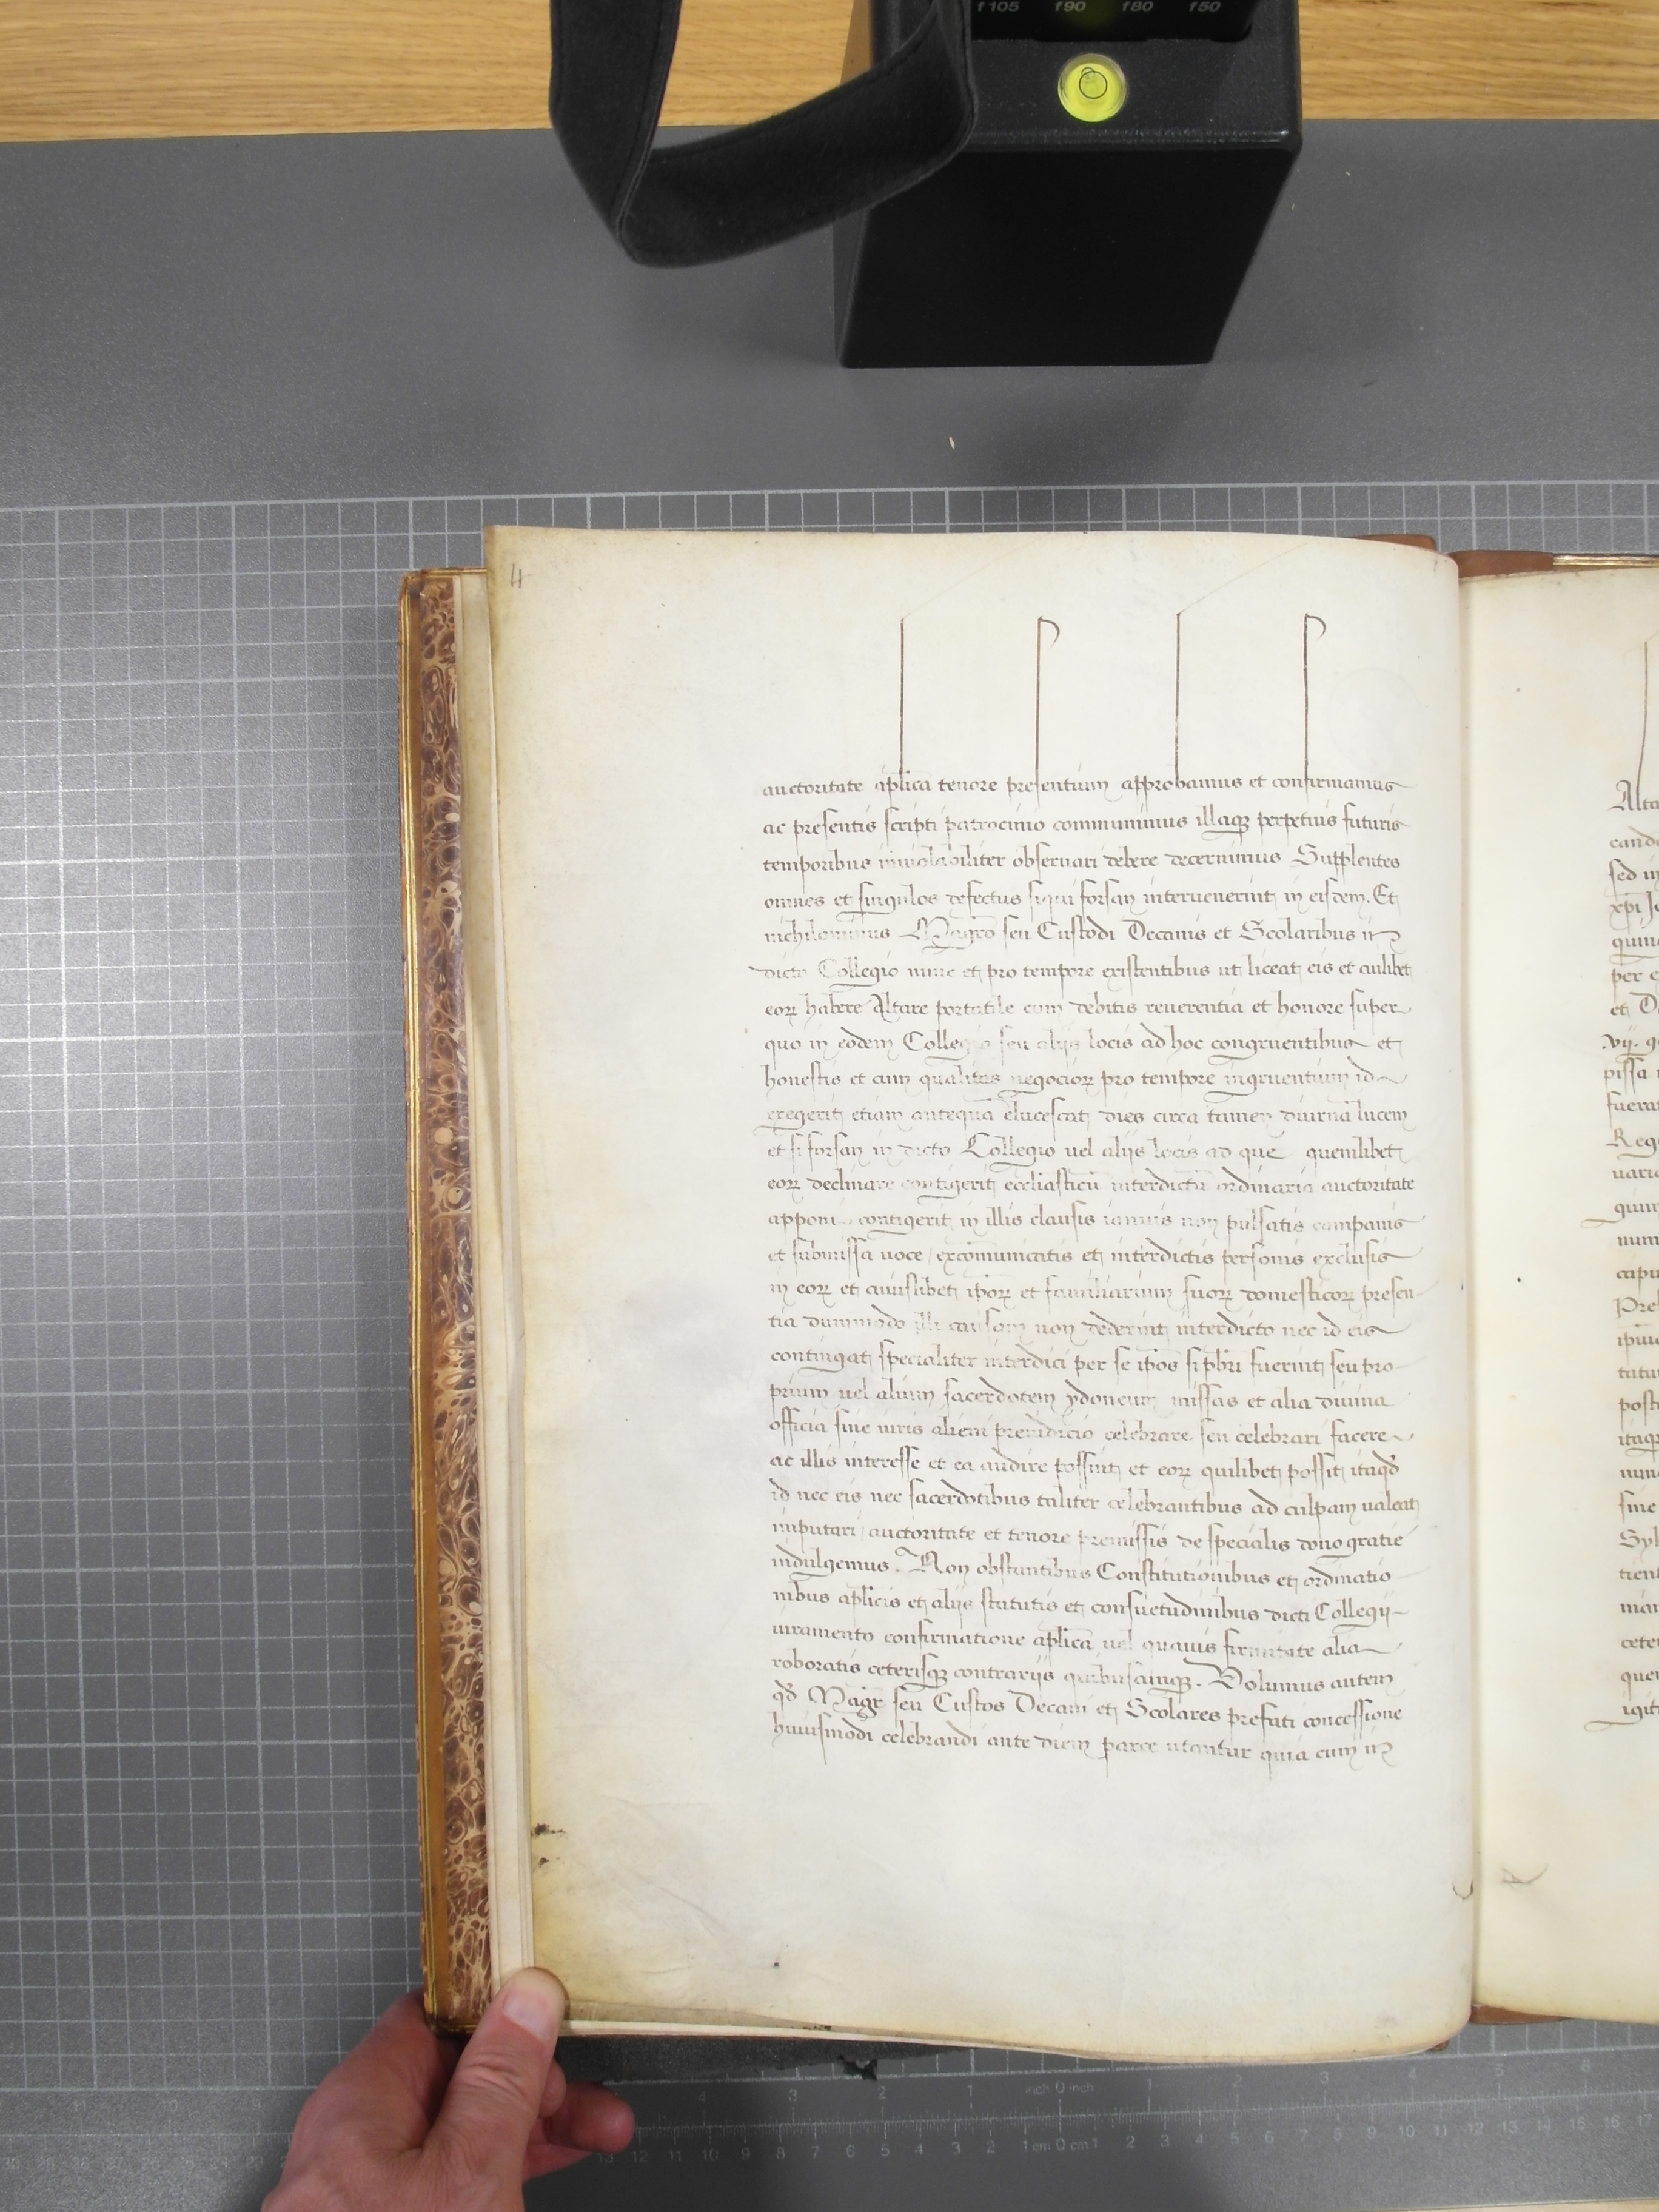 f105 f90 f80 f50
4
auctoritate aplica tenore presentium approbamus et confirmamus
ac presentis scripti patrocinio communimus illaqz perpetuis futuris
temporibus inuiolabiliter obseruari debere decernimus Supplentes
omnes et singulos defectus siqui forsan interuenerint in eisdem. Et
nichilominus Magro seu Custodi Decanis et Scolaribus in
dicto Collegio nunc et pro tempore existentibus ut liceat eis et cuilibet
eorꝝ habere Altare portatile cum debitis reuerentia et honore super
quo in eodem Collegio seu alijs locis ad hoc congruentibus et
honestis et cum qualitas negociorꝝ pro tempore ingruentium id
exegerit etiam antequā elucescat dies circa tamen diurnā lucem
et si forsan in dicto Collegio uel alijs locis ad que quemlibet
eorꝝ declinare contigerit eccliasticū interdictū ordinaria auctoritate
apponi contigerit in illis clausis ianuis non pulsatis campanis
et submissa uoce excōmunicatis et interdictis personis exclusis
in eorꝝ et cuiuslibet ipōrꝝ et familiarium suorꝝ domesticorꝝ presen
tia dummodo illi causam non dederint interdicto nec id eis
contingat specialiter interdici per se ipōs si pbri fuerint seu pro
prium uel alium sacerdotem ydoneum missas et alia diuina
officia sine iuris alieni preiudicio celebrare seu celebrari facere
ac illis interesse et ea audire possint et eorꝝ quilibet possit itaqd
id nec eis nec sacerdotibus taliter celebrantibus ad culpam ualeat
imputari auctoritate et tenore premissis de specialis dono gratie
indulgemus. Non obstantibus Constitutionibus et ordinatio
nibus aplicis et alijs statutis et consuetudinibus dicti Collegij
iuramento confirmatione aplica uel quauis firmitate alia
roboratis ceterisqz contrarijs quibuscunqz. Volumus autem
qd Magr seu Custos Decani et Scolares prefati concessione
huiusmodi celebrandi ante diem parce utantur quia cum in
Alta
cando
sed in
xpi
quin
per
et
vij.
pissa
fuera
Reg
uari
quin
num
capu
Pre
ipiu
tatu
post
itaqz
nun
sine
Syl
tient
man
cete
quen
igit
4 3 2 1 inch 0 inch 1 2 3 4 5 6
13 12 11 10 9 8 7 6 5 4 3 2 1 cm 0 cm 1 2 3 4 5 6 7 8 9 10 11 12 13 14 15 16 17